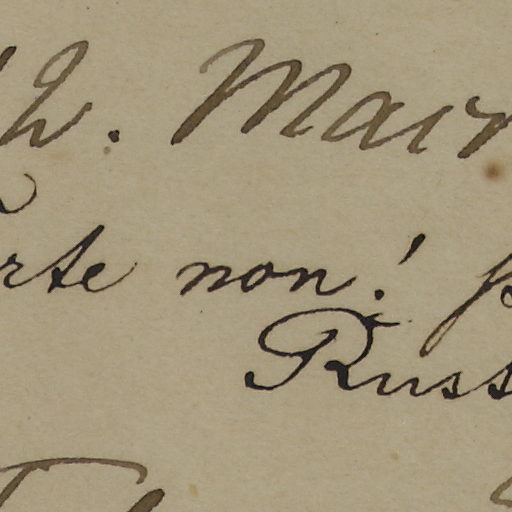 W. Mair
rte non! p
Russ